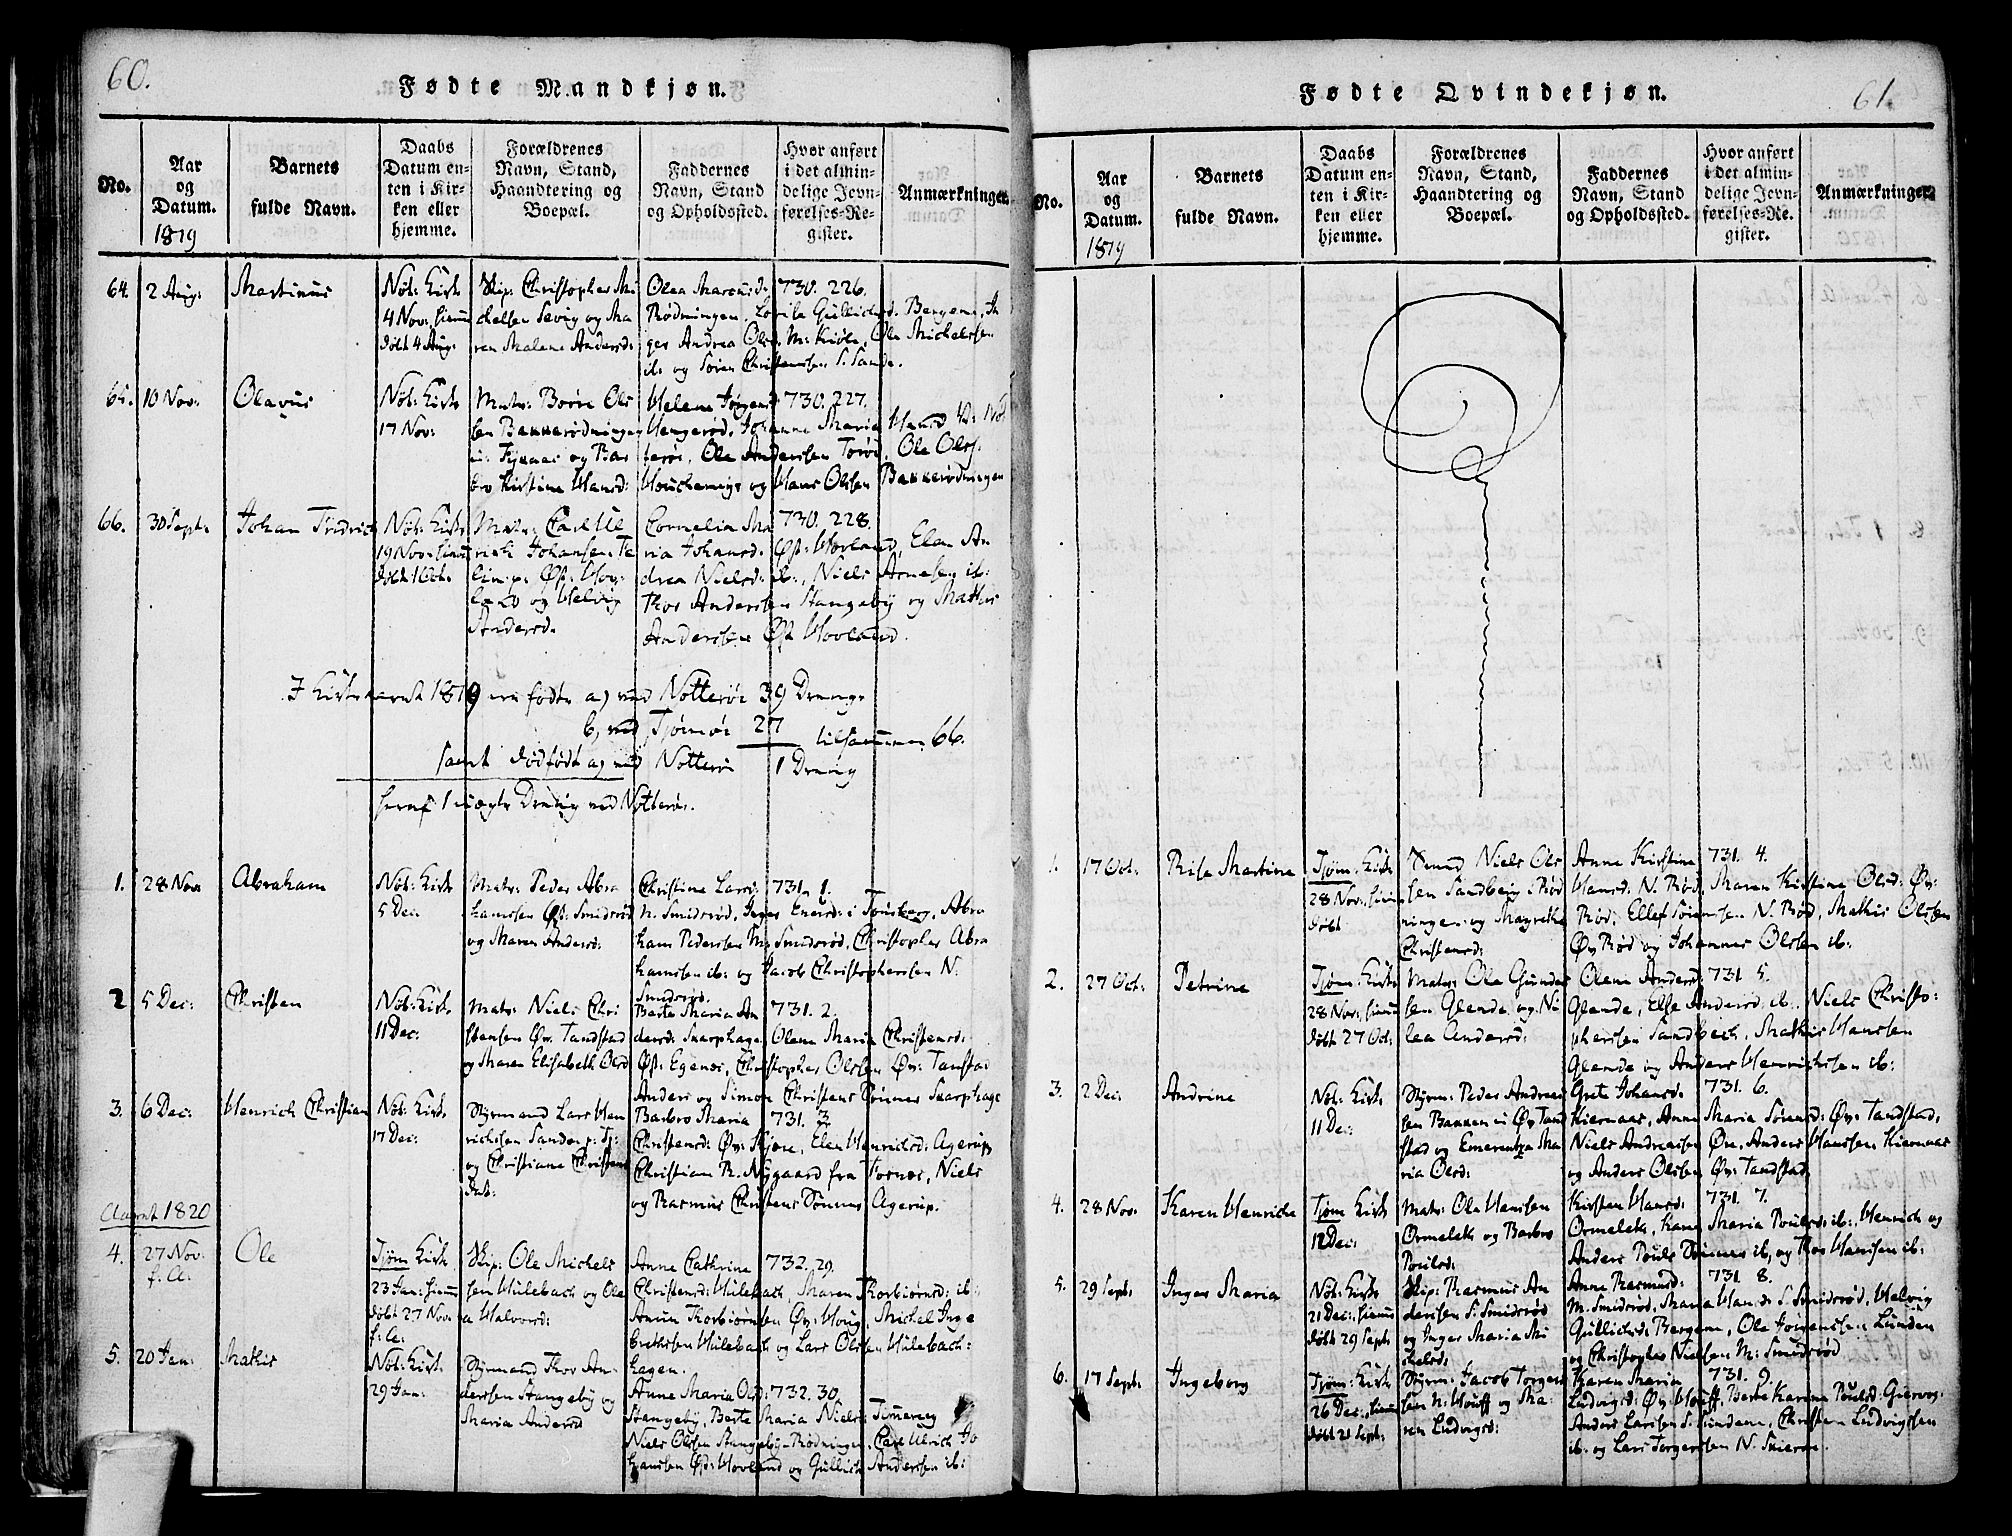 60.
Fødte Mandkjøn.
No.
Aar og Datum.
1819
Barnets fulde Navn.
Daabs Datum enten i Kirken eller hjemme.
Forældrenes Navn, Stand, Haandtering og Boepæl.
Faddernes Navn, Stand og Opholdssted.
Hvor anført i det almindelige Jevnførelses-Register.
Anmærkninger.
64. 2 Aug: Martinus
Nöt: Kirke
4 Nov: hiemme
döbt 4 Aug:
Skip: Christopher Mi
chelsen Sevig og Ma
ren Malene Andersd:
Olea Marcusd: 730. 226.
Rødningen, Lovise Gullichsd. Bergene, In
ger Andrea Olsd. M: Kiöle, Ole Michelssen
ib: og Sören Christensen S. Sande.
65. 10 Nov: Olavus
Nöt: Kirke
17 Nov:
Matr: Borre Ols
sen Bakkerödningen
og Bar
bro Kirstine Hansd:
Helene Jørgensd 730. 227.
Hengerød, Johanne Maria Hansd
Ole Andersen Torød, Ole Olss:
og Hans Olssen Bakkerödningen
66. 30 Sept: Johan Fridrich
Nöt: Kirke
19 Nov: hiemme
döbt 1 Oct:
Matr: Carl Ul
rich Johansen
Øst: Hov
land og Helvig
Andersd.
Cornelia Ma 730. 228.
ria Johansd. Øst: Hovland, Elen An
drea Nielsd: ib:, Niels Arnesen ib:
Thor Andersen Stangeby og Mathis
Andersen Øst Hovland.
I Kirkeaaret 1819 ere fødte a) ved Nötteröe 39 Drenge
b, ved Tjömöe 27
tilsammen 66.
samt dødfødt a, ved Nötteröe 1 Dreng
heraf 1 uægte Dreng ved Nötteröe.
1. 28 Nov: Abraham
Nöt: Kirke
5 Dec:
Matr: Peder Abra
hamsen Øst: Smidsrød
og Maren Andersd:
Christine Larsd: 731. 1.
N. Smidsrød, Inger Enersd: i Tønsberg, Abra
ham Pedersen M: Smidsrød, Christopher Abra
hamsen ib: og Jacob Christophersen N.
Smidsrød.
2 5 Dec: Christen
Nöt: Kirke
11 Dec:
Matr: Niels Chri
stensen Øv. Tandstad
og Maren Elisabeth Olsd
Berte Maria An 731. 2.
dersd: Skarphage, Olena Maria Christensd:
Øst: Egenes, Christopher Olssen Øv: Tanstad
Anders og Simon Christens Sönner Skarphage
3. 6 Dec: Henrich Christian
Nöt: Kirke
17 Dec:
Styrmand Lars Hen
richsen Sandø
og Christiane Christens
Dat:
Barbro Maria 731. 3
Christensd: Øv: Skjøne, Elen Henrichsd: Agerup
Christian R. Nygaard fra Fornæs, Niels
og Rasmus Christens Sönner Agerup.
Aaret 1820
4. 27 Nov: f: A: Ole
Tjøm: Kirke
23 Jan: hiemme
döbt 27 Nov:
f: A:
Skip: Ole Michels
sen Hulebach og Ole
a Halvorsd:
Anne Cathrine 732. 29.
Christensd: Hulebach, Maren Thorbiörnsd: ib:
Amun Thorbiörnsen Øv: Houg, Michel Inge
brethsen Hulebach og Lars Olssen Hulebach:
hagen.
5. 20 Jan: Mathis
Nöt: Kirke
29 Jan:
Styrmand Thor An
dersen Stangeby og
Maria Andersd
Anne Maria Olsd: 732. 30.
Stangeby, Berte Maria Nielsd:
Niels Olssen Stangeby-Rödningen, Carl Ulrich Jo
hansen Øst: Hovland og Gullich Andersen ib:
61.
Fødte Qvindekjøn.
No.
Aar og Datum.
1819
Barnets fulde Navn.
Daabs Datum enten i Kirken eller hjemme.
Forældrenes Navn, Stand, Haandtering og Boepæl.
Faddernes Navn, Stand og Opholdssted.
Hvor anført i det almindelige Jevnførelses-Register.
Anmærkninger.
1. 17 Oct: Martine
Tjøm: Kirke
28 Nov: hiem
döbt
Niels Ols
sen Sandbeig i Röd
ningen og Magrethe
Christensd:
Anne Kirstine 731. 4.
Hansd: N. Röd, Maren Kirstine Olsd: Öv:
Röd, Ellef Sörensen N. Röd, Mathis Olssen
Öv: Röd og Johannes Olssen ib:
2. 27 Oct: Petrine
Tjøm: Kirke
28 Nov: hiemme
döbt 27 Oct:
Matr: Ole Gunder
sen Glende og Ni
lea Andersd:
Olene Andersd: 731 5.
Glende, Else Andersd ib., Niels Christo:
phersen Sandbech, Mathis Hanssen
Glende og Anders Henrichssen ib:
3. 2 Dec: Andrine
Nöt: Kirke
11 Dec:
Styrm: Peder Andreas
sen Bakken Öv Tand
stad og Emerentze Ma
ria Olsd:
Grete Johansd: 731. 6.
Kiernaas, Anne Maria Sörensd: Öv: Tandstad,
Niels Andreassen Anders Hanssen Kiernaas
og Anders Olssen Öv: Tandstad
4. 28 Nov. Karen Henriche
Tjøm Kirke
12 Dec:
Matr: Ole Hanssen
Ormelete og Barbro
Poulsd:
Kirsten Hansd: 731. 7.
Ormelete, Karen Maria Poulsd: ib:, Henrich og
Anders Pouls Sönner ib, og Thor Hanssen ib:
5. 29 Sept: Inger Maria
Nöt: Kirke
21 Dec: hiemme
döbt 29 Sept:
Skip: Rasmus An
dersen S: Smidsrød
og Inger Maria Mi
chelsd:
Anne Rasmusd: 731 8.
M. Smidsrød, Maria Hansd: S: Smidsrød, Helvig
Gullichsd: Bergene, Ole Jörgenssen Lunden
og Christopher Nielssen M: Smidsrød
6. 17 Sept: Ingeborg
Tjøm: Kirke
26 Dec:, hiemme
döbt 21 Sept:
Styrm: Jacob Torger
sen N: Houff og Ma:
ren Ludvigsd:
Karen Maria 731. 9.
Ludvigsd: Öv: Houff, Berte Karine Poulsd:
Anders Larssen S. Christen Ludvigssen
ib: og Lars Torgerssen N.